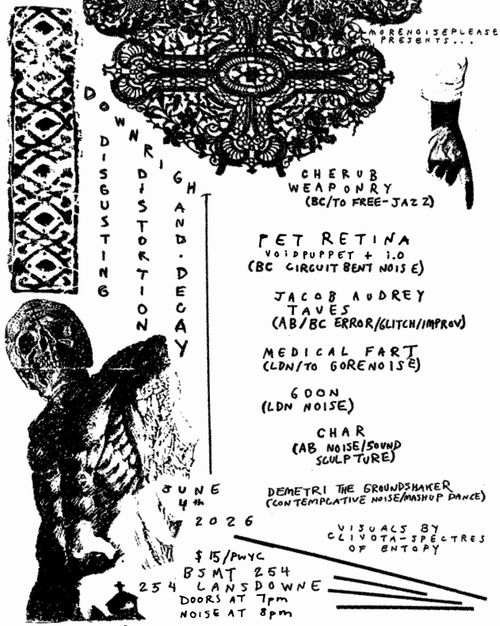 MORENOISEPLEASE
PRESENTS...
DOWNRIGHT
DISGUSTING
DISTORTION
AND·DECAY
CHERUB
WEAPONRY
(BC/TO FREE-JAZZ)
PET RETINA
VOIDPUPPET + I.O
(BC CIRCUIT BENT NOISE)
JACOB AUDREY
TAVES
(AB/BC ERROR/GLITCH/IMPROV)
MEDICAL FART
(LDN/TO GORENOISE)
GOON
(LDN NOISE)
CHAR
(AB NOISE/SOUND
SCULPTURE)
DEMETRI THE GROUNDSHAKER
(CONTEMPLATIVE NOISE/MASHUP DANCE)
JUNE
4th
2026
VISUALS BY
CLIVOTA-SPECTRES
OF ENTOPY
$15/PWYC
BSMT 254
254 LANSDOWNE
DOORS AT 7pm
NOISE AT 8pm